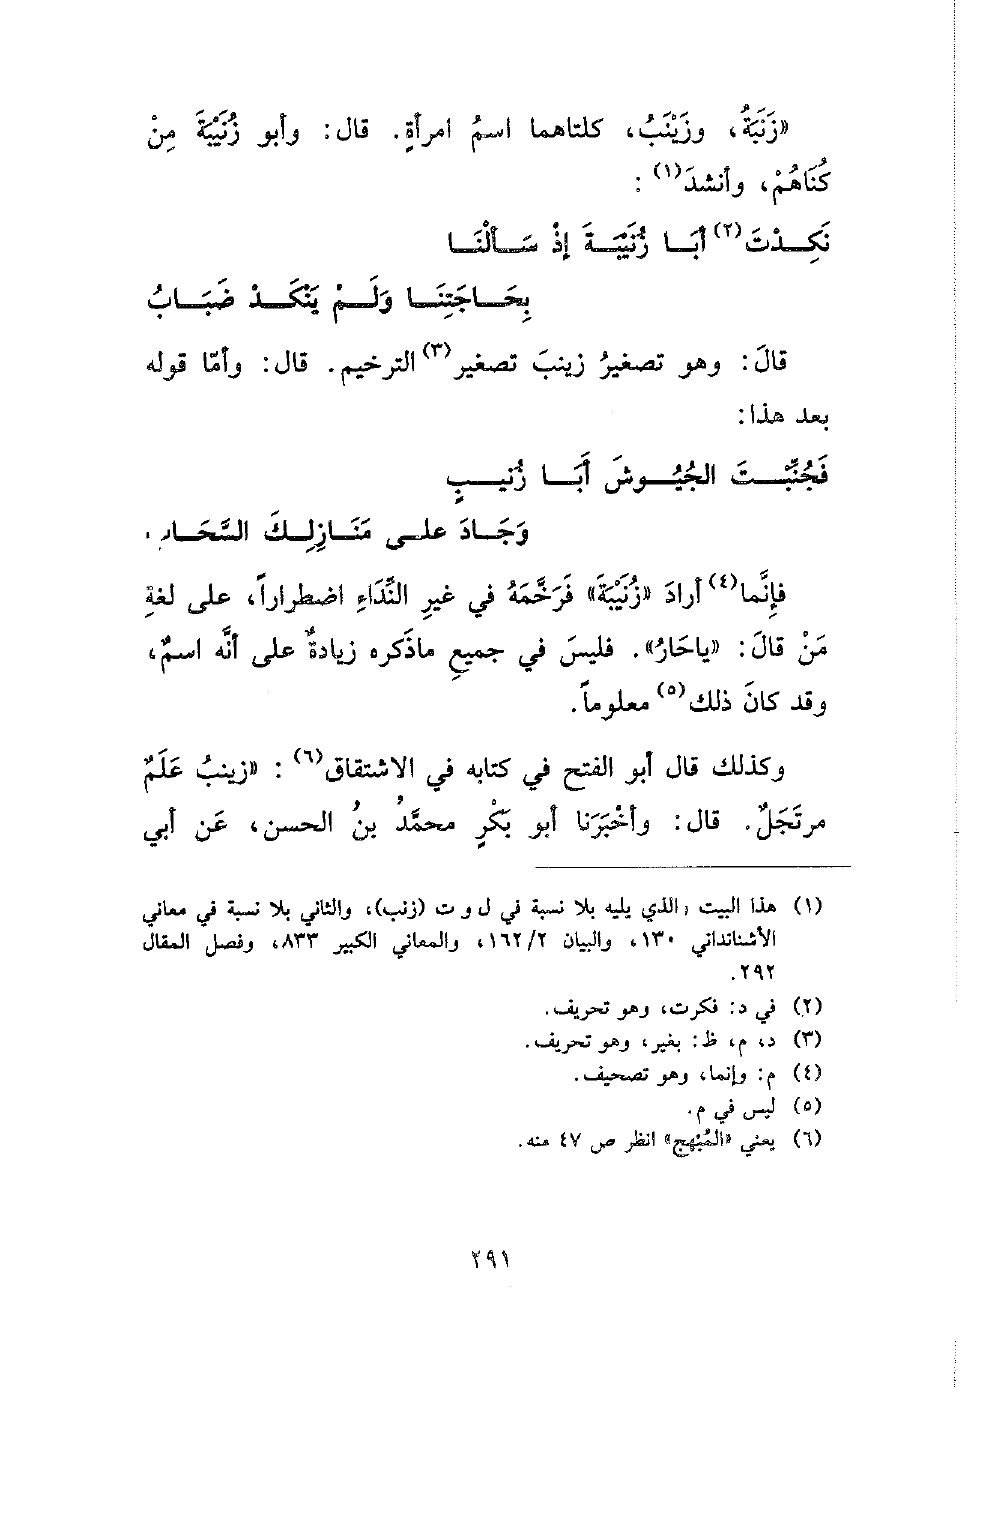 «زَنَبَةُ، وزَيْنَبُ، كلتاهما اسمُ امرأةٍ. قال: وأبو زُنَيْبَةَ مِنْ
كُنَاهُمْ، وأنشدَ(١) :
نَكِـدْتَ(٢) أَبَـا زُنَيْبَـةَ إذْ سَـأَلْنَـا
بِحَـاجَتِنَـا وَلَـمْ يَنْكَـدْ ضَبَـابُ
قالَ: وهو تصغيرُ زينبَ تصغير(٣) الترخيم. قال: وأمّا قوله
بعد هذا:
فَجُنِّبْـتَ الجُيُـوشَ أَبَـا زُنَيـبٍ
وَجَـادَ علـى مَنَـازِلِـكَ السَّحَـابُ
فإنَّما(٤) أرادَ «زُنَيْبَةَ» فَرَخَّمَهُ في غيرِ النِّدَاءِ اضطراراً، على لغةِ
مَنْ قالَ: «ياحَارُ». فليسَ في جميعِ ماذَكره زيادةٌ على أنَّه اسمٌ،
وقد كانَ ذلك(٥) معلوماً.
وكذلك قال أبو الفتح في كتابه في الاشتقاق(٦) : «زينبُ عَلَمٌ
مرتَجَلٌ. قال: وأخْبَرَنا أبو بَكْرٍ محمَّدُ بنُ الحسن، عَن أبي
(١) هذا البيت والذي يليه بلا نسبة في ل و ت (زنب)، والثاني بلا نسبة في معاني
الأشنانداني ١٣٠، والبيان ١٦٢/٢، والمعاني الكبير ٨٣٣، وفصل المقال
٢٩٢.
(٢) في د: فكرت، وهو تحريف.
(٣) د، م، ظ: بغير، وهو تحريف.
(٤) م: وإنما، وهو تصحيف.
(٥) ليس في م.
(٦) يعني «المُبْهج» انظر ص ٤٧ منه.
٢٩١